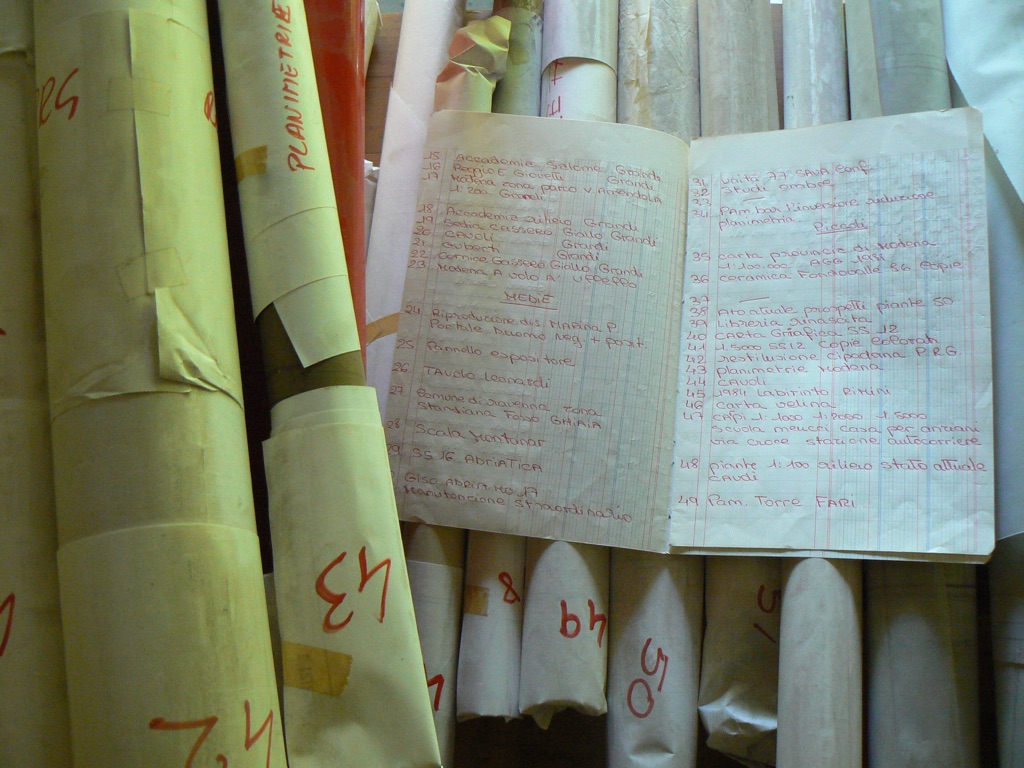 PLANIMETRIE
15 Accademia Salone Grandi
16 Poggio E Giovetti Grandi
17 Modena zona parco V. Amendola
1:200. Grandi
18 Accademia rilievo Grandi
19 Sedia CASSERO Giallo Grandi
20 CAVOLI Grandi
21 Grandi
22 Cornice CASSERO Giallo Grandi
23 Modena A volo
MEDIE
24 Riproduzione dis. MARINA P.
Portale Duomo Neg. + posit.
25 Pannello espositore
26 TAVOLO Leonardi
27 Comune di Ravenna zona
Standiana Fosso GHIAIA
28 Scala Montanari
29 SS 16 ADRIATICA
17
Manutenzione straordinario
31 unità 77 SAVA
32 Studi ombre
33
34 PAM. bar riduzione
planimetria
Piccoli
35 carta provincia di Modena
1:100.000 1981
36 ceramica Fondovalle 86 copie
37 —
38 Ato attuale prospetti piante 50
39 Libreria rinascita
40 CARTA Grafica SS. 12
41 1.5000 SS12 copie colorate
42 restituzione cispadana P.R.G.
43 planimetrie Modena
44 CAVOLI
45 1984 Labirinto Rimini
46 Carta velina
47 1:1000 1:2000 1:5000
Scuola casa per anziani
via stazione autocorriere
48 piante 1:100 rilievo stato attuale
CAVOLI
49 Pam. Torre FARI
43
42
8
49
50